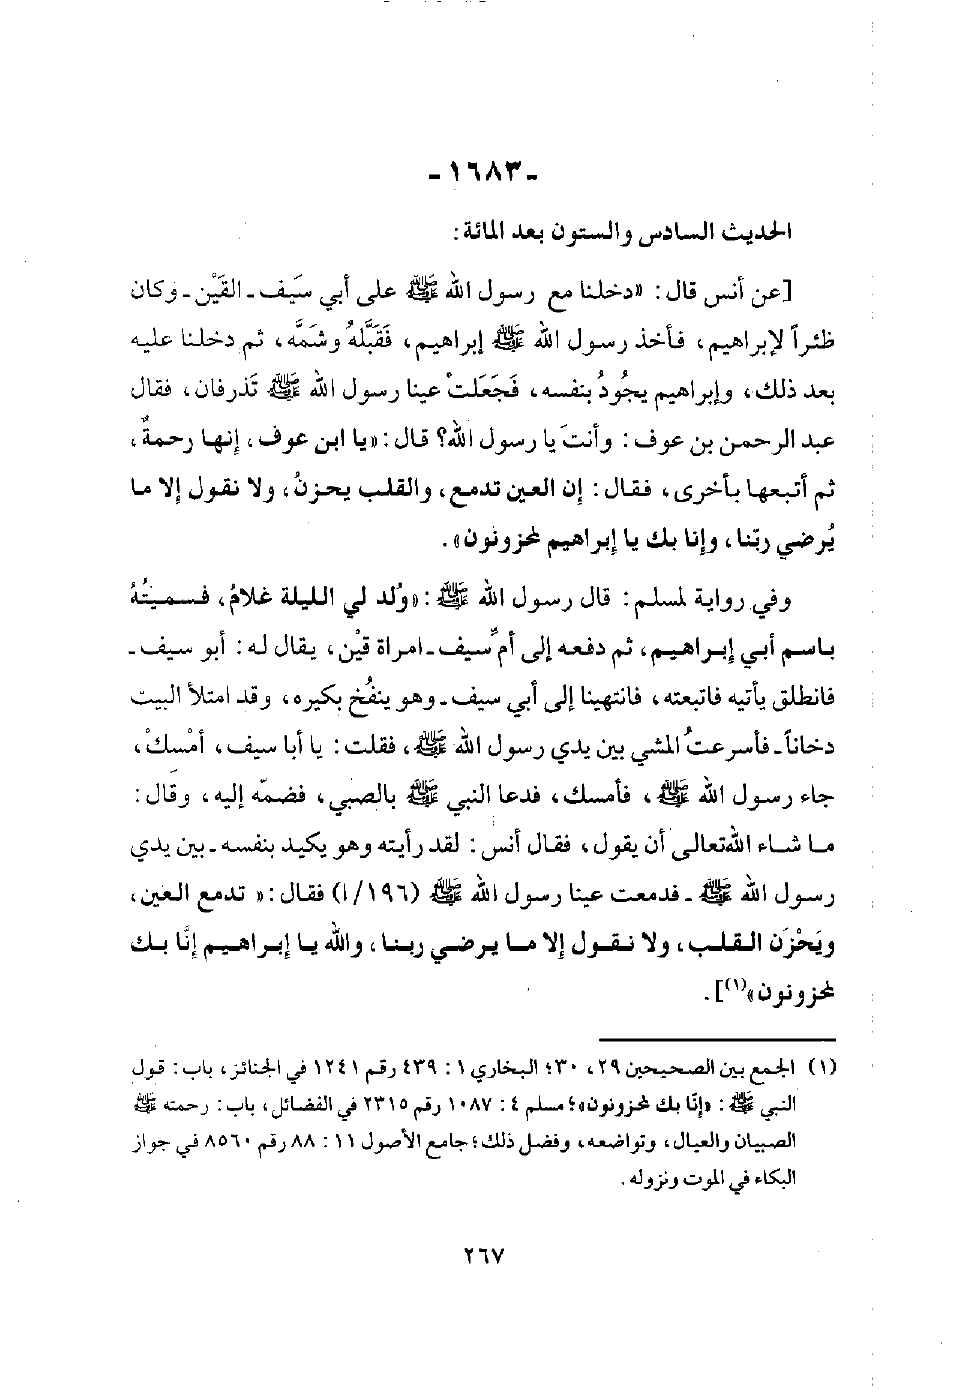 - ١٦٨٣ -
الحديث السادس والستون بعد المائة:
[عن أنس قال: «دخلنا مع رسول الله ﷺ على أبي سَيَف ـ القَيْن ـ وكان
ظئراً لإبراهيم، فأخذ رسول الله ﷺ إبراهيم، فَقَبَّلهُ وشَمَّه، ثم دخلنا عليه
بعد ذلك، وإبراهيم يجُودُ بنفسه، فَجَعَلتْ عينا رسول الله ﷺ تَذرفان، فقال
عبد الرحمن بن عوف: وأنتَ يا رسول الله؟ قال: «يا ابن عوف، إنها رحمةٌ،
ثم أتبعها بأخرى، فقال: إن العين تدمع، والقلب يحزنُ، ولا نقول إلا ما
يُرضي ربّنا، وإنا بك يا إبراهيم لمحزونون».
وفي رواية لمسلم: قال رسول الله ﷺ: «وُلد لي الليلة غلامُ، فسميتُهُ
باسم أبي إبراهيم، ثم دفعه إلى أم سيف ـ امراة قيْن، يقال له: أبو سيف ـ
فانطلق يأتيه فاتبعته، فانتهينا إلى أبي سيف ـ وهو ينفُخ بكيره، وقد امتلأ البيت
دخاناً ـ فأسرعتُ المشي بين يدي رسول الله ﷺ، فقلت: يا أبا سيف، أمْسكْ،
جاء رسول الله ﷺ، فأمسك، فدعا النبي ﷺ بالصبي، فضمّه إليه، وقال:
ما شاء الله تعالى أن يقول، فقال أنس: لقد رأيته وهو يكيد بنفسه ـ بين يدي
رسول الله ﷺ ـ فدمعت عينا رسول الله ﷺ (١٩٦/أ) فقال: « تدمع العين،
ويَحْزَن القلب، ولا نقول إلا ما يرضي ربنا، والله يا إبراهيم إنَّا بك
لمحزونون»(١)].
(١) الجمع بين الصحيحين ٢٩، ٣٠؛ البخاري ١: ٤٣٩ رقم ١٢٤١ في الجنائز، باب: قول
النبي ﷺ: «إنّا بك لمحزونون»؛ مسلم ٤: ١٠٨٧ رقم ٢٣١٥ في الفضائل، باب: رحمته ﷺ
الصبيان والعيال، وتواضعه، وفضل ذلك؛ جامع الأصول ١١: ٨٨ رقم ٨٥٦٠ في جواز
البكاء في الموت ونزوله.
٢٦٧